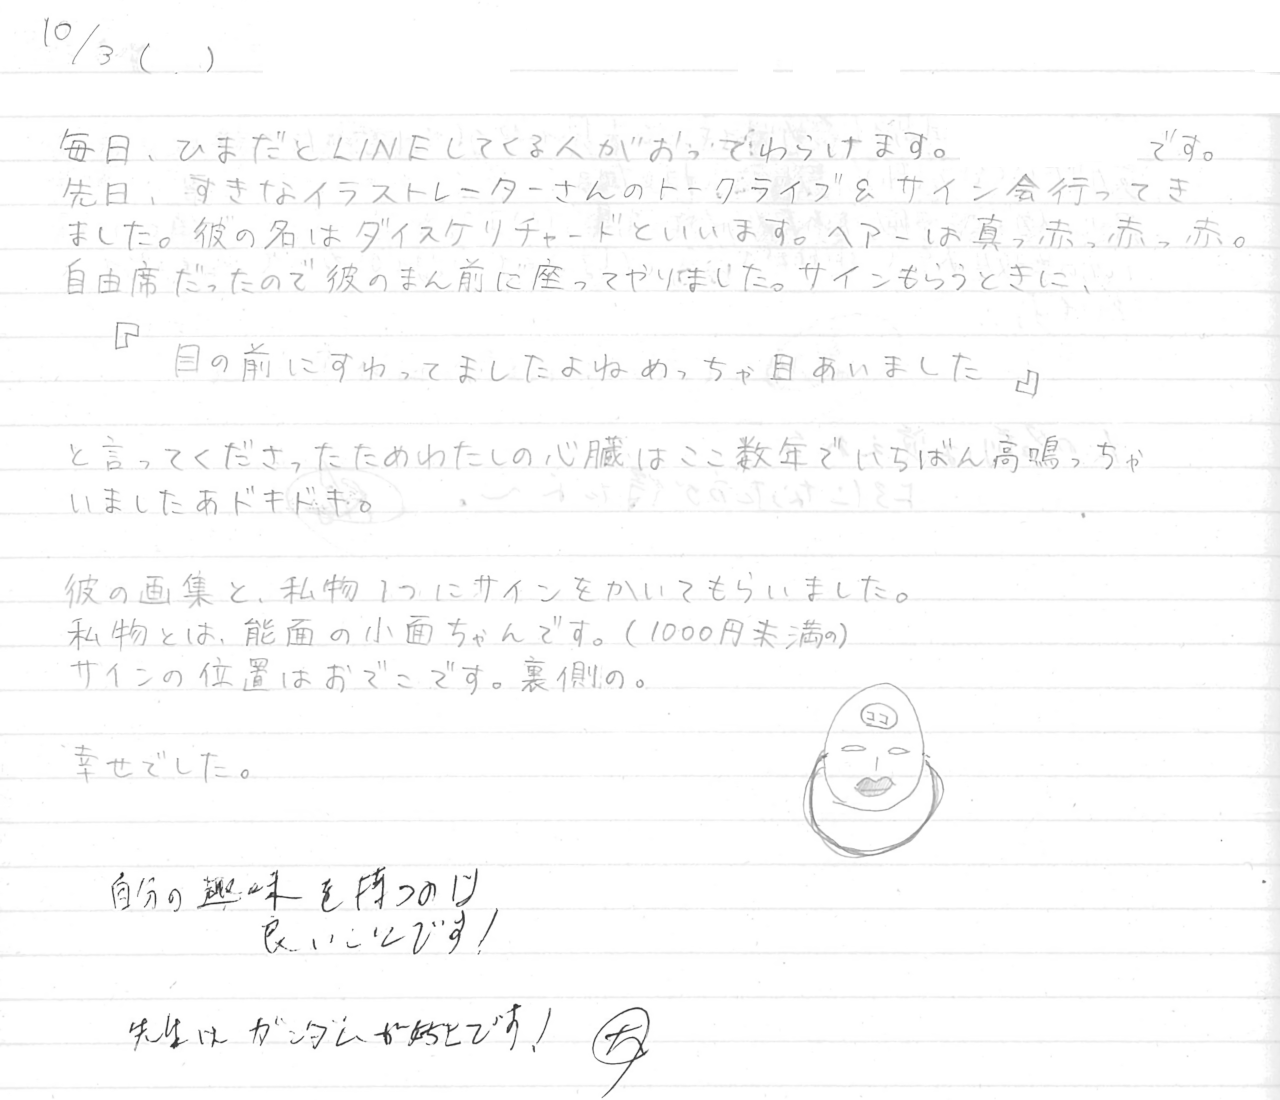 10/3 ( )
毎日、ひまだとLINEしてくる人がおってわらけます。 です。
先日、すきなイラストレーターさんのトークライブ&サイン会行ってき
ました。彼の名はダイスケリチャードといいます。ヘアーは真っ赤っ赤っ赤。
自由席だったので彼のまん前に座ってやりました。サインもらうときに、
『
目の前にすわってましたよねめっちゃ目あいました 』
と言ってくださったためわたしの心臓はここ数年でいちばん高鳴っちゃ
いましたあドキドキ。
彼の画集と、私物1つにサインをかいてもらいました。
私物とは、能面の小面ちゃんです。(1000円未満の)
サインの位置はおでこです。裏側の。
ココ
幸せでした。
自分の趣味を持つのは
良いことです!
先生はガンダムが好きです! ち